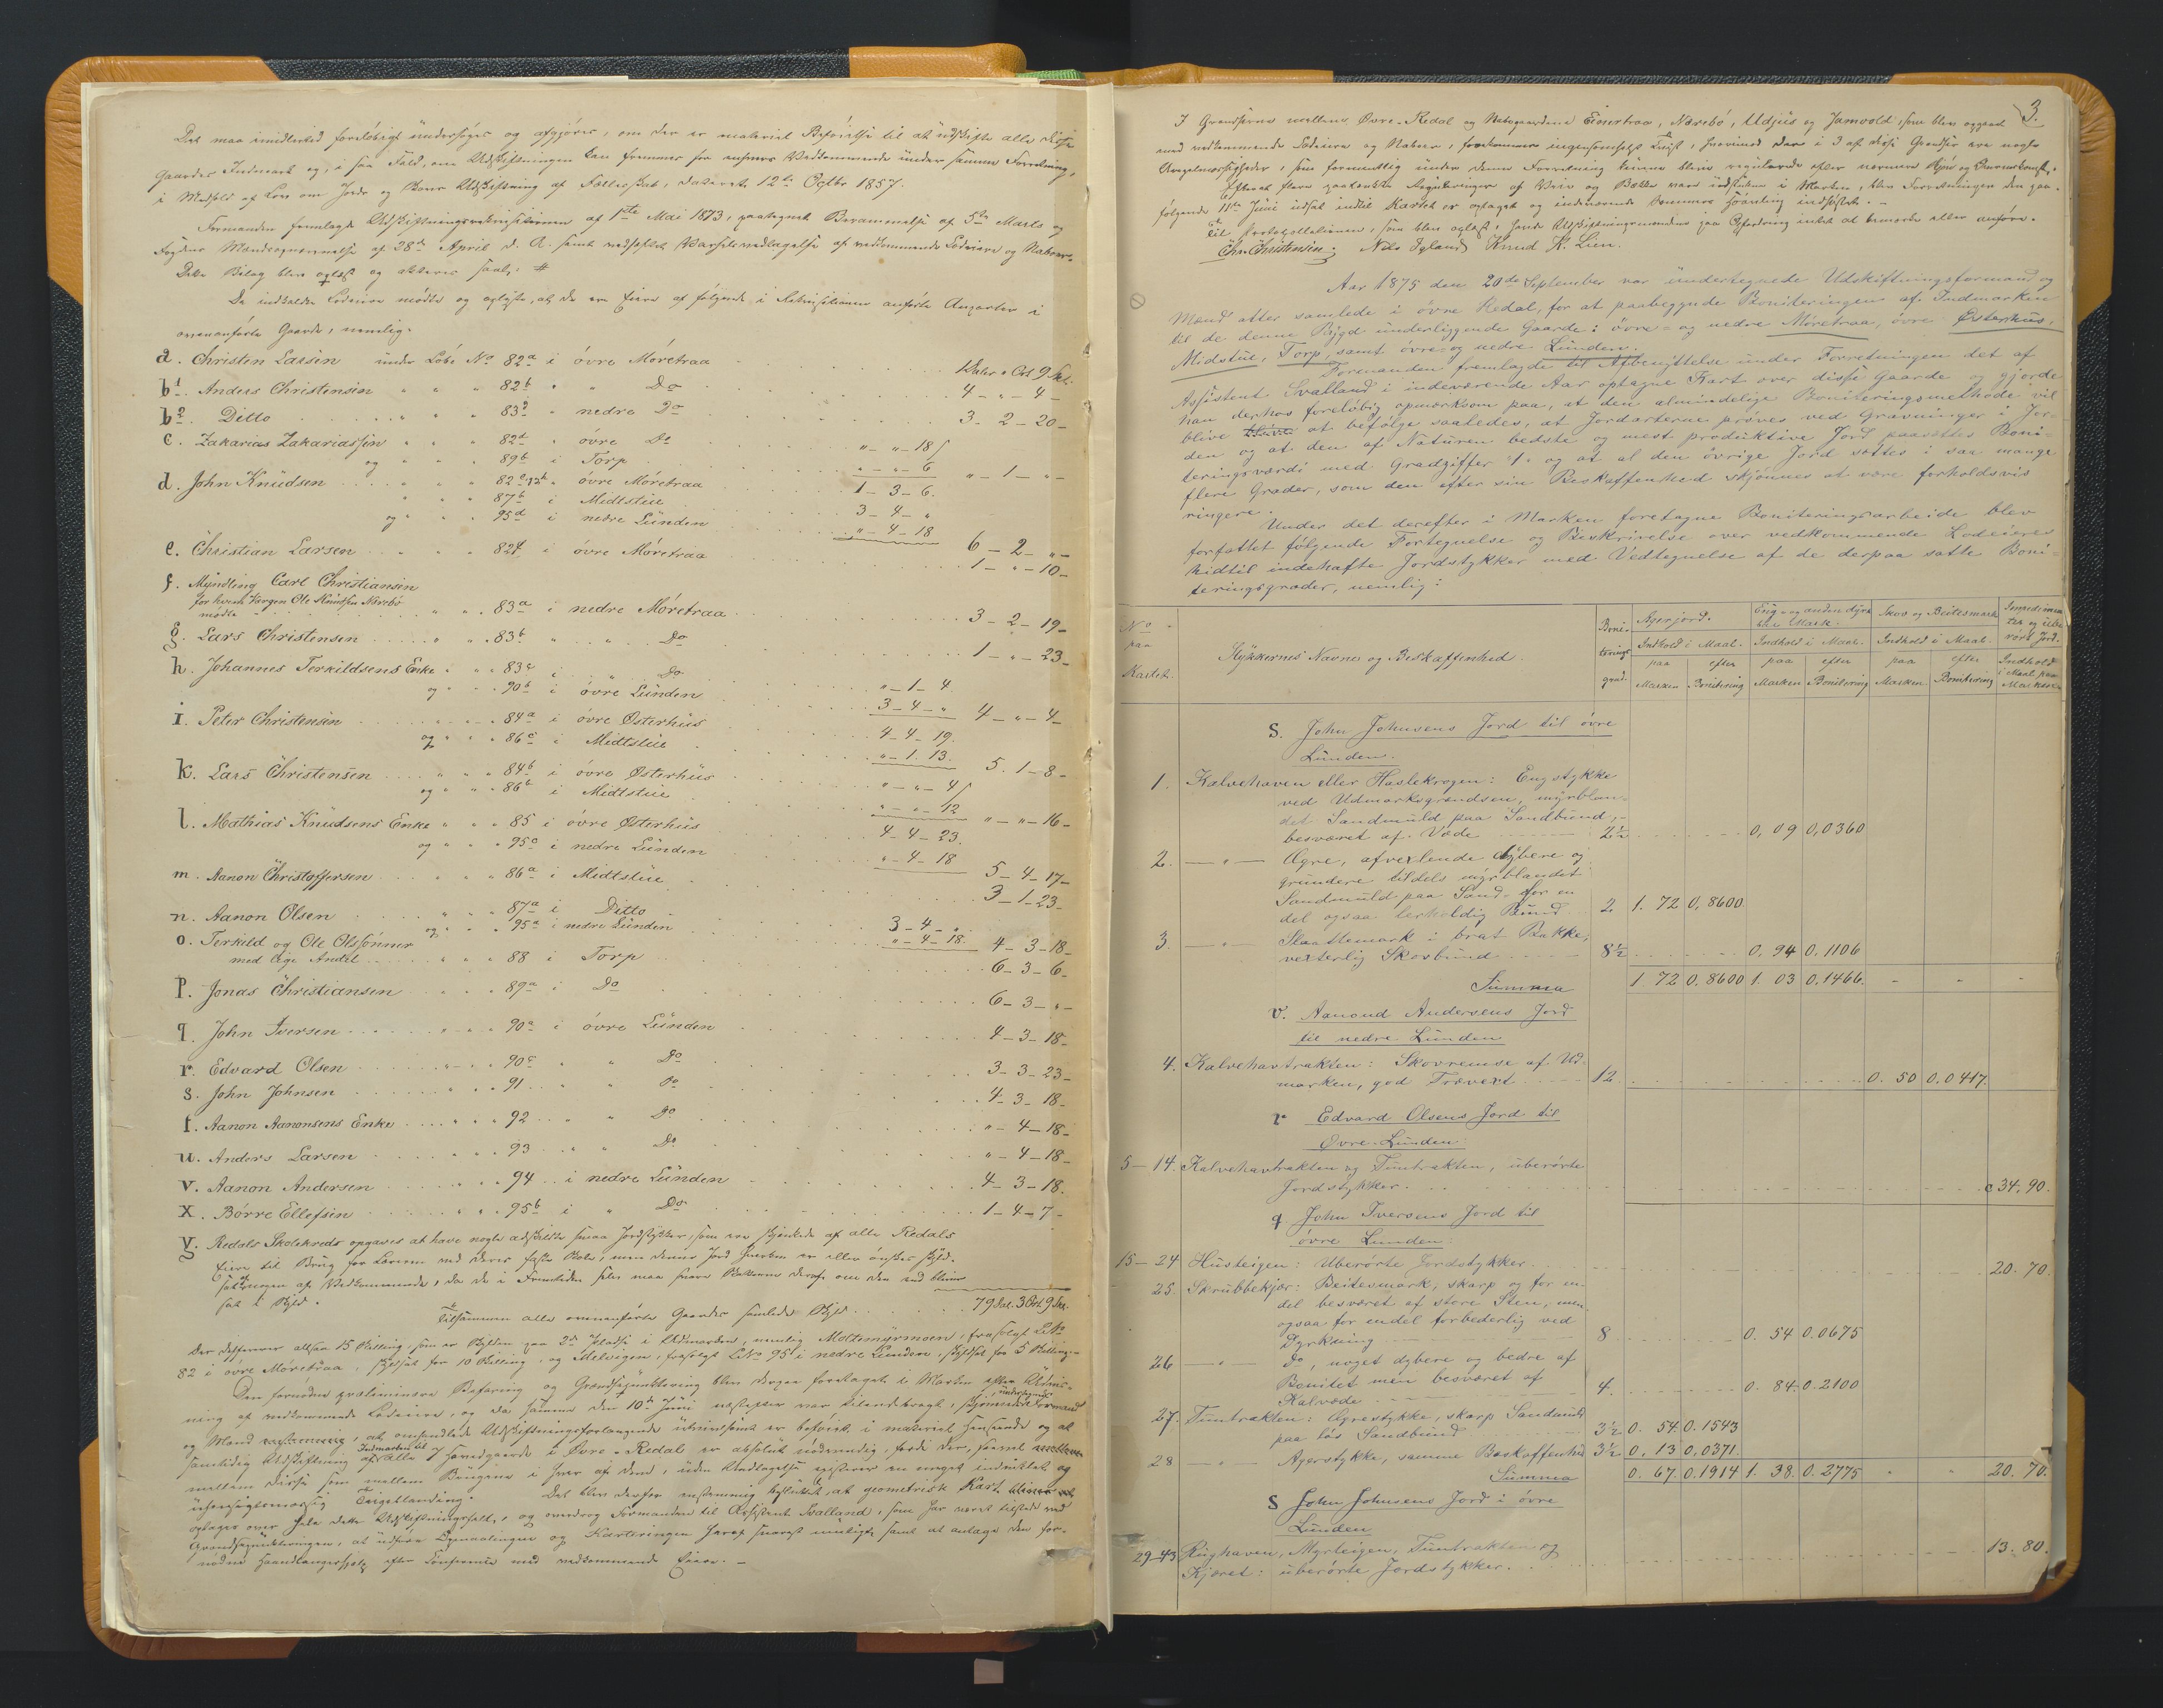 Det maa imidlertid foreløbigt undersøges og afgjøres, om der er materiel Beføielse til at udskifte alle disse
Gaardes Indmark og, i saa Fald, om Udskiftningen kan fremmes for enhvers Vedkommende under samme Forretning,
i Medhold af Lov om Jords og Skovs Udskiftning af Fællesskab, dateret 12te Octbr 1857.
Formanden fremlagde Udskiftningsrekvisitionen af 1ste Mai 1873, paategnet Berammelse af 5te Marts og
Fogdens Mandsopnævnelse af 28de April d. A. samt vedheftet Varselsvedtagelse af vedkommende Lodeiere og Naboer.
Dette Bilag blev oplæst og akteres saal: #
De indkaldte Lodeiere mødte og oplyste, at de ere Eiere af følgende i Rekvisitionen anførte Anparter i
ovenanførte Gaarde, nemlig:
a. Christen Larsen under Løbe No 82a i övre Móretraa 1 Daler " Ort 9 Skl.
b1. Anders Christensen " " " 82b " " Do 4 - " - 4 -
b2. Ditto " " " 83d " nedre Do 3 - 2 - 20 -
c. Zakarias Zakariassen " " " 82d " övre Do " - " - 18
og " " " 89b i Torp " - " - 6 " - 1 - " -
d. John Knudsen " " " 82c " övre Móretraa 1 - 3 - 6.
" " " 87b i Midtstue 3 - 4 - "
og " " " 95d i nedre Lunden " - 4 - 18 6 - 2 - " -
e. Christian Larsen " " " 82f i övre Móretraa 1 - " - 10 -
f. Myndling Carl Christiansen
for hvem Værgen Ole Knudsen Nærebö
mødte " " " 83a i nedre Móretraa 3 - 2 - 19 -
g. Lars Christensen " " " 83b " " " Do 1 - " - 23 -
h. Johannes Terkildsens Enke " " " 83c i " Do " - 1 - 4
og " " " 90b i övre Lunden 3 - 4 - " 4 - " - 4 -
i. Peter Christensen " " " 84a i övre Østerhus 4 - 4 - 19.
og " " " 86c i Midtstue " - 1. 13. 5. 1 - 8 -
k. Lars Christensen " " " 84b i övre Østerhus " - " - 4
og " " " 86b i Midtstue " - " - 12 " - " - 16 -
l. Mathias Knudsens Enke " " " 85 i övre Østerhus 4 - 4 - 23.
og " " " 95c i nedre Lunden " - 4 - 18 5 - 4 - 17 -
m. Aanon Christoffersen " " " 86a i Midtstue 3 - 1 - 23 -
n. Aanon Olsen " " " 87a i Ditto 3 - 4 - "
og " " " 95a i nedre Lunden " - 4 - 18. 4 - 3 - 18 -
o. Terkild og Ole Olssønner
med lige Andel " " " 88 i Torp 6 - 3 - 6 -
p. Jonas Christiansen " " " 89a i Do 6 - 3 - " -
q. John Iversen " " " 90a i övre Lunden 4 - 3 - 18 -
r. Edvard Olsen " " " 90c " " Do 3 - 3 - 23 -
s. John Johnsen " " " 91 " " Do 4 - 3 - 18 -
t. Aanon Aanonsens Enke " " " 92 " " Do " - 4 - 18 -
u. Anders Larsen " " " 93 " " Do " - 4 - 18 -
v. Aanon Andersen " " " 94 i nedre Lunden 4 - 3 - 18.
x. Børre Ellefsen " " " 95b i " Do 1 - 4 - 7 -
y. Redals Skolekreds opgaves at have nogle adskilte smaa Jordstykker, som ere skjænkede af alle Redals
Eiere til Brug for Læreren ved deres faste Skole, men denne Jord hverken er eller ønskes skyld-
sat af nogen af Vedkommende, da de i Fremtiden selv maa svare Skatterne deraf om den end bliver
sat i Skyld.
Tilsammen alle ovenanførte Gaardes samlede Skyld 79 Dal. 3 Ort 9 Sk.
Der desforuden altsaa 15 Skilling, som er Skylden paa 2de i Udmarken, nemlig Moltemyrmoen, frasolgt LNo
82 i övre Móretraa, skyldsat for 10 Skilling, og Melveigen, frasolgt LNo 95 i nedre Lunden, skyldsat for 5 Skilling.
Den fornødne præliminære Befaring og Grændsepunktering blev derpaa foretaget i Marken efter Udvis-
ning af vedkommende Lodeiere, og da samme den 10de Juni næstefter var tilendebragt, skjønnede undertegnede Formand
og Mænd, at omhandlede Udskiftningsforlangende er beføiet i materiel Henseende og at
samtidig Udskiftning af Indmarken til alle 7 Hovedgaarde i Øvre-Redal er absolut nødvendig, fordi der, saavel
mellem disse som mellem Brugene i hver af dem, uden Undtagelse existerer en meget indviklet og
uhensigtsmæssig Teigeblanding. Det blev derfor enstemmig besluttet, at geometrisk Kart
optages over hele dette Udskiftningsfelt, og overdrog Formanden til Assistent Svalland, som har været tilstede ved
Grændsepunkteringen, at udføre Opmaalingen og Karteringen heraf snarest muligt samt at antage den for-
nødne Haandlangerhjælp efter Conference med vedkommende Eiere. -
3.
I Grændserne mellem Øvre-Redal og Nabogaardene Eimertraa, Nærebö, Udjus og Jamvold, som blev opgaaet
med vedkommende Lodeiere og Naboer, forekommer ingensomhelst Tvist, hvorimod der i 3 af disse Grændser ere nogle
Uregelmæssigheder, som formentlig under denne Forretning kunne blive regulerede efter nærmere Skjøn og Overenskomst.
Efterat flere paatænkte Reguleringer af Veie og Bække vare udstukne i Marken, blev Forretningen den paa-
følgende 11te Juni udsat indtil Kartet er optaget og indeværende Sommers Høaaring indhøstet. -
Til Protokollationen, som blev oplæst, havde Udskiftningsmændene paa Opfordring intet at bemærke eller anføre.
Chr. Christensen. Nils Igland Knud K. Lien.
Aar 1875 den 20de September var undertegnede Udskiftningsformand og
Mænd atter samlede i övre Redal, for at paabegynde Boniteringen af Indmarken
til de denne Bygd underliggende Gaarde: övre- og nedre Móretraa, övre Østerhus,
Midstue, Torp, samt övre- og nedre Lunden.
Formanden fremlagde til Afbenyttelse under Forretningen det af
Assistent Svalland i indeværende Aar optagne Kart over disse Gaarde og gjorde
han derhos foreløbig opmærksom paa, at den almindelige Boniteringsmethode vil
blive at befølge saaledes, at Jordarterne prøves ved Gravninger i Jor-
den og at den af Naturen bedste og mest produktive Jord paasættes Boni-
teringsværdi med Gradziffer "1" og at al den øvrige Jord sættes i saa mange
flere Grader, som den efter sin Beskaffenhed skjønnes at være forholdsvis
ringere.
Under det derefter i Marken foretagne Boniteringsarbeide blev
forfattet følgende Fortegnelse og Beskrivelse over vedkommende Lodeieres
hidtil indehafte Jordstykker med Vedtegnelse af de derpaa satte Boni-
teringsgrader, nemlig:
No paa Kartet. Stykkernes Navne og Beskaffenhed. Bonite-rings-grad. Agerjord. Eng- og anden dyrkbar Mark. Skov og Beitesmark
Indhold i Maal. Indhold i Maal. Indhold i Maal. Indhold i Maal paa Marken
paa Marken efter Bonitering paa Marken efter Bonitering paa Marken efter Bonitering
S. John Johnsens Jord til övre
Lunden.
1. Kalvehaven eller Haslekrogen: Engstykke
ved Udmarksgrændsen, myrblan-
det Sandmuld paa Sandbund,
besværet af Væde 2½ 0, 09 0,0360
2. — " — Agre, afvexlende dybere og
grundere tildels myrblandet
Sandmuld paa Sand- for en
del ogsaa lerholdig Bund 2 1. 72 0, 8600
3. — " — Slaattemark i brat Bakke,
vexterlig Skovbund 8½ 0, 94 0. 1106
Summa 1 72 0. 8600 1. 03 0. 1466. - - -
v. Aanond Andersens Jord
til nedre Lunden
4. Kalvehavtrakten: Skovremse af Ud-
marken, god Trævext 12 0. 50 0.0417.
r Edvard Olsens Jord til
Øvre-Lunden
5-14. Kalvehavtrakten og Tuntrakten, uberørte
Jordstykker. 34. 90.
q John Iversens Jord til
övre Lunden
15-24 Husteigen: Uberørte Jordstykker. 20. 70.
25. Skrubbekjær: Beitesmark, skarp og for en
del besværet af store Sten, men
ogsaa for endel forbederlig ved
Dyrkning 8 0. 54 0.0675
26 — " — Do, noget dybere og bedre af
Bonitet men besværet af
Kalvæde 4. 0. 84. 0. 2100
27. Tuntrakten: Agrestykke, skarp Sandmuld
paa løs Sandbund 3½ 0. 54. 0.1543
28 — " — Agerstykke, samme Beskaffenhed 3½ 0. 13 0,0371.
Summa 0. 67. 0.1914 1. 38. 0. 2775 " " 20. 70.
S John Johnsens Jord i övre
Lunden
29-43 Rughaven, Myrteigen, Tuntrakten og
Kjæret: uberørte Jordstykker. 13. 80.